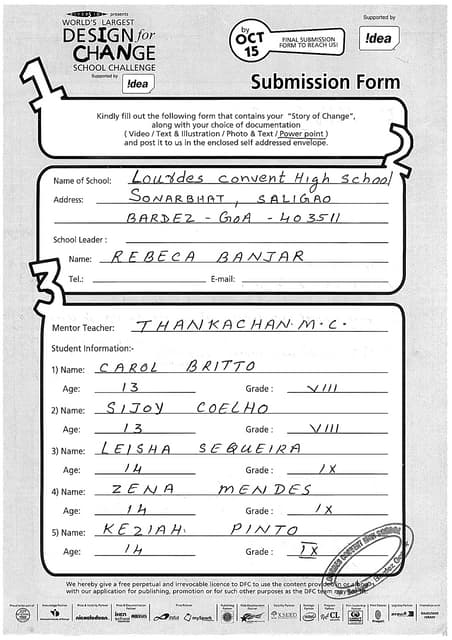 presents
WORLD'S LARGEST
DESIGN for
CHANGE
SCHOOL CHALLENGE
Supported by
!dea
by
OCT
15
FINAL SUBMISSION
FORM TO REACH US!
Supported by
!dea
Submission Form
1
Kindly fill out the following form that contains your "Story of Change",
along with your choice of documentation
( Video / Text & Illustration / Photo & Text / Power point )
and post it to us in the enclosed self addressed envelope.
2
Name of School: Lourdes Convent High School
Address: SONARBHAT, SALIGAO
BARDEZ - GOA - 403511
School Leader :
Name: REBECA BANJAR
Tel.: E-mail:
3
Mentor Teacher: THANKACHAN.M.C.
Student Information:-
1) Name: CAROL BRITTO
Age: 13 Grade : VIII
2) Name: SIJOY COELHO
Age: 13 Grade : VIII
3) Name: LEISHA SEQUEIRA
Age: 14 Grade : IX
4) Name: ZENA MENDES
Age: 14 Grade : IX
5) Name: KEZIAH PINTO
Age: 14 Grade : IX
We hereby give a free perpetual and irrevocable licence to DFC to use the content provided in or along
with our application for publishing, promotion or for such other purposes as the DFC team may
nickelodeon mySpark